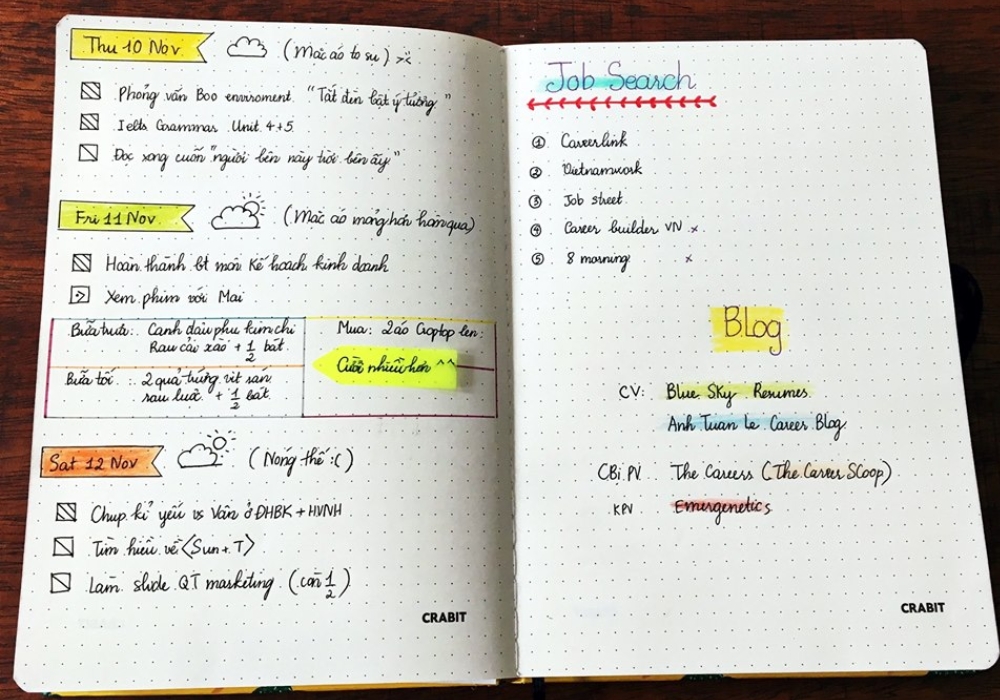 Thu 10 Nov (Mặc áo to sụ) >:<
Phỏng vấn Boo enviroment. "Tắt đèn bật ý tưởng"
Ielts Grammar Unit 4+5.
Đọc xong cuốn "người bên này trời bên ấy"
Fri 11 Nov (Mặc áo mỏng hơn hôm qua)
Hoàn thành bt môn Kế hoạch kinh doanh
Xem phim với Mai
Bữa trưa: Canh đậu phụ kim chi
Rau cải xào + 1/2 bát.
Bữa tối: 2 quả trứng vịt
sau luộc + 1/2 bát
Mua: 2 áo Croptop len:
Cười nhiều hơn ^^
Sat 12 Nov (Nóng thế :()
Chụp kỉ yếu vs Vân ở ĐHBK + HVNH
Tìm hiểu về <Sun + T>
Làm slide QT marketing (còn 1/2)
CRABIT
Job Search
① Careerlink
② Vietnamwork
③ Job street
④ Career builder VN x
⑤ 8 morning x
Blog
CV: Blue Sky Resumes
Anh Tuan Le Career Blog
CBi PV The Careers (The Career SCoop)
KPV Emergenetics
CRABIT